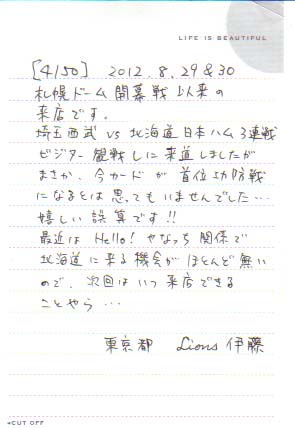 LIFE IS BEAUTIFUL
[4150] 2012.8.29&30
札幌ドーム開幕戦以来の
来店です。
埼玉西武 vs 北海道日本ハム3連戦
ビジター観戦しに来道しましたが
まさか、今カードが首位攻防戦
になるとは思ってもいませんでした…
嬉しい誤算です!!
最近は Hello! やなっち関係で
北海道に来る機会がほとんど無い
ので、次回はいつ来店できる
ことやら…
東京都 Lions 伊藤
◂CUT OFF